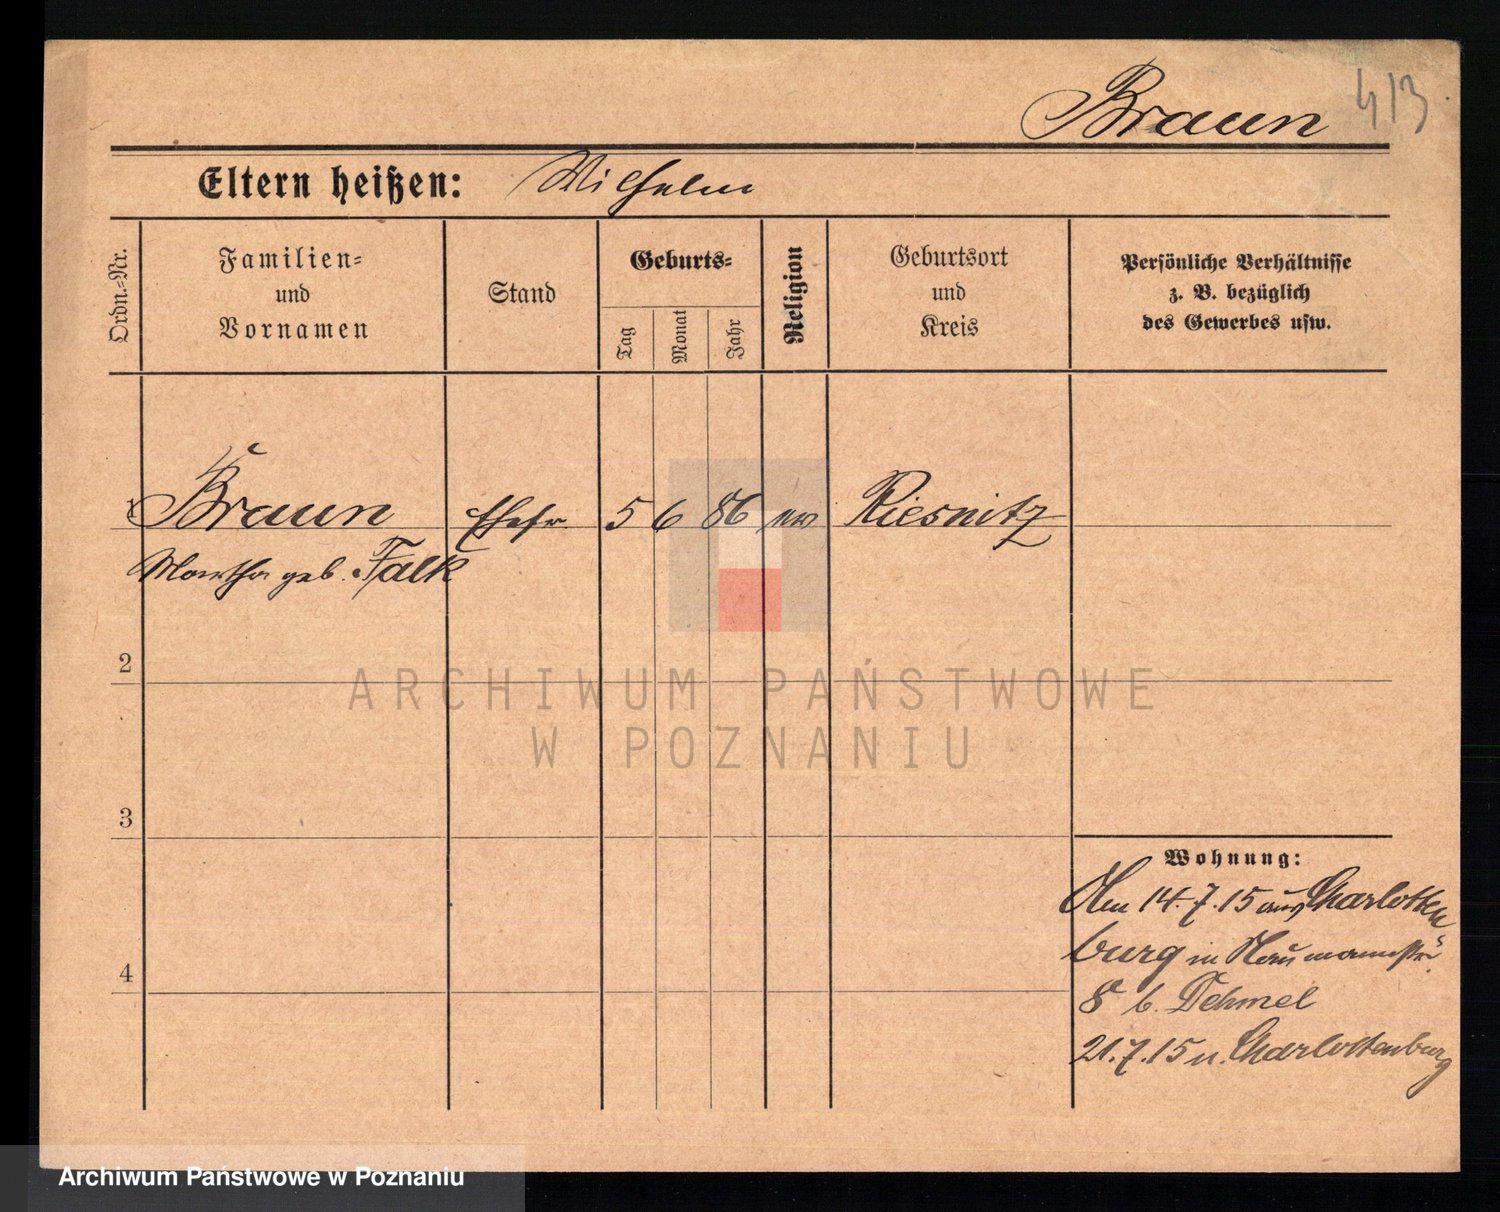 Braun 413
Eltern heißen: Wilhelm
Ordn.-Nr.
Familien-
und
Vornamen
Stand
Geburts-
Tag
Monat
Jahr
Religion
Geburtsort
und
Kreis
Persönliche Verhältnisse
z. B. bezüglich
des Gewerbes usw.
1 Braun Ehefr 5 6 86 ev Riesnitz
Martha geb. Falk
2
3
4
Wohnung:
Am 14.7.15 aus Charlotten
burg in Naumannstr.
8 b. Dehmel
21.7.15 n. Charlottenburg
ARCHIWUM PAŃSTWOWE
W POZNANIU
Archiwum Państwowe w Poznaniu